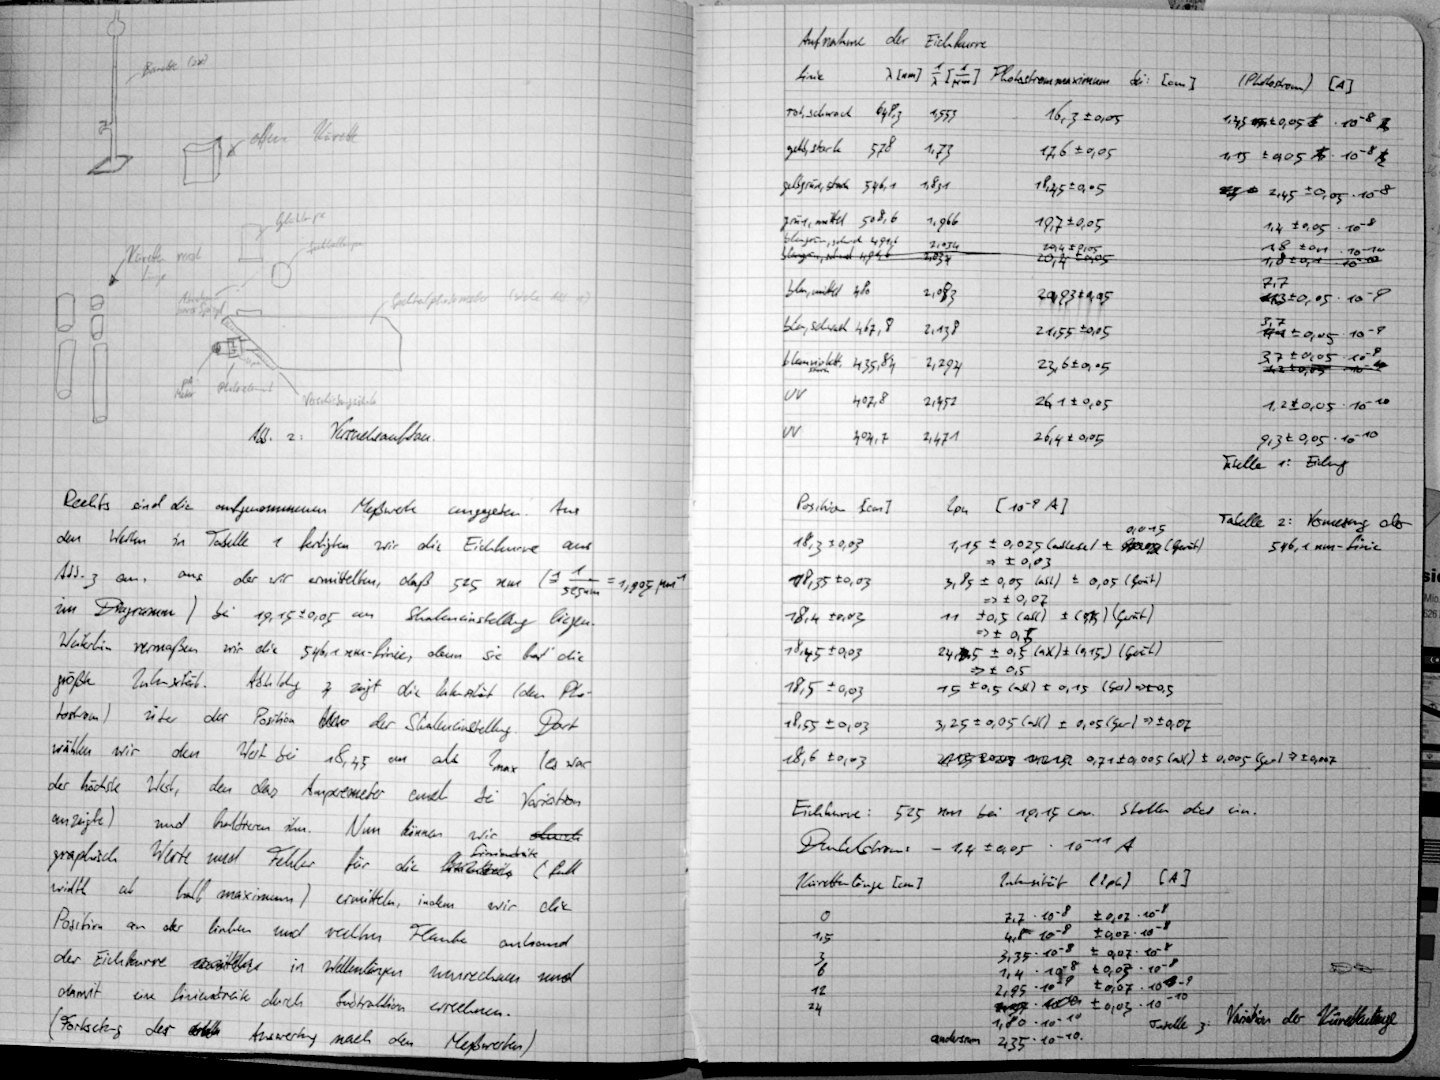 Bürette (50)
offene Küvette
Glühlampe
Küvetten nach
Länge
Photoelement
Abb. 2: Versuchsaufbau.
Rechts sind die aufgenommenen Meßwerte angegeben. Aus
den Werten in Tabelle 1 fertigten wir die Eichkurve aus
Abb. 3 an, aus der wir ermittelten, daß 525 nm (≙ 1/525nm = 1,905 µm⁻¹
im Diagramm) bei 19,15 ± 0,05 cm Skaleneinstellung liegen.
Weiterhin vermaßen wir die 546,1 nm-Linie, denn sie hat die
größte Intensität. Abbildg 4 zeigt die Intensität (den Pho-
tostrom) über der Position der Skaleneinstellung. Dort
wählen wir den Wert bei 18,45 cm als I max (es war
der höchste Wert, den das Amperemeter auch bei Variation
anzeigte) und halbieren ihn. Nun können wir
graphisch Werte und Fehler für die Linienbreite (full
width at half maximum) ermitteln, indem wir die
Position an der linken und rechten Flanke anhand
der Eichkurve in Wellenlängen umrechnen und
damit eine Linienbreite durch Subtraktion errechnen.
(Fortsetzg der Auswertung nach den Meßwerten)
Aufnahme der Eichkurve
Linie λ [nm] 1/λ [1/µm] Photostrommaximum bei: [cm] (Photostrom) [A]
rot, schwach 648,3 1,553 16,3 ± 0,05 1,45 ± 0,05 · 10⁻⁸
gelb, stark 578 1,73 17,6 ± 0,05 1,15 ± 0,05 · 10⁻⁸
gelbgrün, stark 546,1 1,831 18,45 ± 0,05 2,45 ± 0,05 · 10⁻⁸
grün, mittel 508,6 1,966 19,7 ± 0,05 1,4 ± 0,05 · 10⁻⁸
blaugrün, schwach 491,6 2,034 20,4 ± 0,05 1,8 ± 0,1 · 10⁻¹⁰
blau, mittel 480 2,083 20,93 ± 0,05 7,7 ± 0,05 · 10⁻⁹
blau, schwach 467,8 2,138 21,55 ± 0,05 3,7 ± 0,05 · 10⁻⁹
blauviolett, stark 435,84 2,294 23,6 ± 0,05 3,7 ± 0,05 · 10⁻⁹
UV 407,8 2,452 26,1 ± 0,05 1,2 ± 0,05 · 10⁻¹⁰
UV 404,7 2,471 26,4 ± 0,05 9,3 ± 0,05 · 10⁻¹⁰
Tabelle 1: Eichung
Position [cm] Iph [10⁻⁹ A]
Tabelle 2: Vermessung der
546,1 nm-Linie
18,3 ± 0,03 1,15 ± 0,025 (ablese) ± 0,015 (Gerät)
=> ± 0,03
18,35 ± 0,03 3,85 ± 0,05 (abl) ± 0,05 (Gerät)
=> ± 0,07
18,4 ± 0,03 11 ± 0,5 (abl) ± (Gerät)
18,45 ± 0,03 24,5 ± 0,5 (abl) ± (0,15) (Gerät)
=> ± 0,5
18,5 ± 0,03 15 ± 0,5 (abl) ± 0,15 (Ger) => ± 0,5
18,55 ± 0,03 3,25 ± 0,05 (abl) ± 0,05 (Ger) => ± 0,07
18,6 ± 0,03 0,71 ± 0,005 (abl) ± 0,005 (Ger) => ± 0,007
Eichkurve: 525 nm bei 19,15 cm. Stellen dies ein.
Dunkelstrom: - 1,4 ± 0,05 · 10⁻¹¹ A
Küvettenlänge [cm] Intensität (Iph) [A]
0 7,7 · 10⁻⁸ ± 0,07 · 10⁻⁸
1,5 4,8 · 10⁻⁸ ± 0,07 · 10⁻⁸
3 3,35 · 10⁻⁸ ± 0,07 · 10⁻⁸
6 1,4 · 10⁻⁸ ± 0,03 · 10⁻⁸
12 2,95 · 10⁻⁹ ± 0,07 · 10⁻⁹
24 ± 0,03 · 10⁻¹⁰
1,80 · 10⁻¹⁰
Tabelle 3: Variation der Küvettenlänge
andersrum 2,35 · 10⁻¹⁰